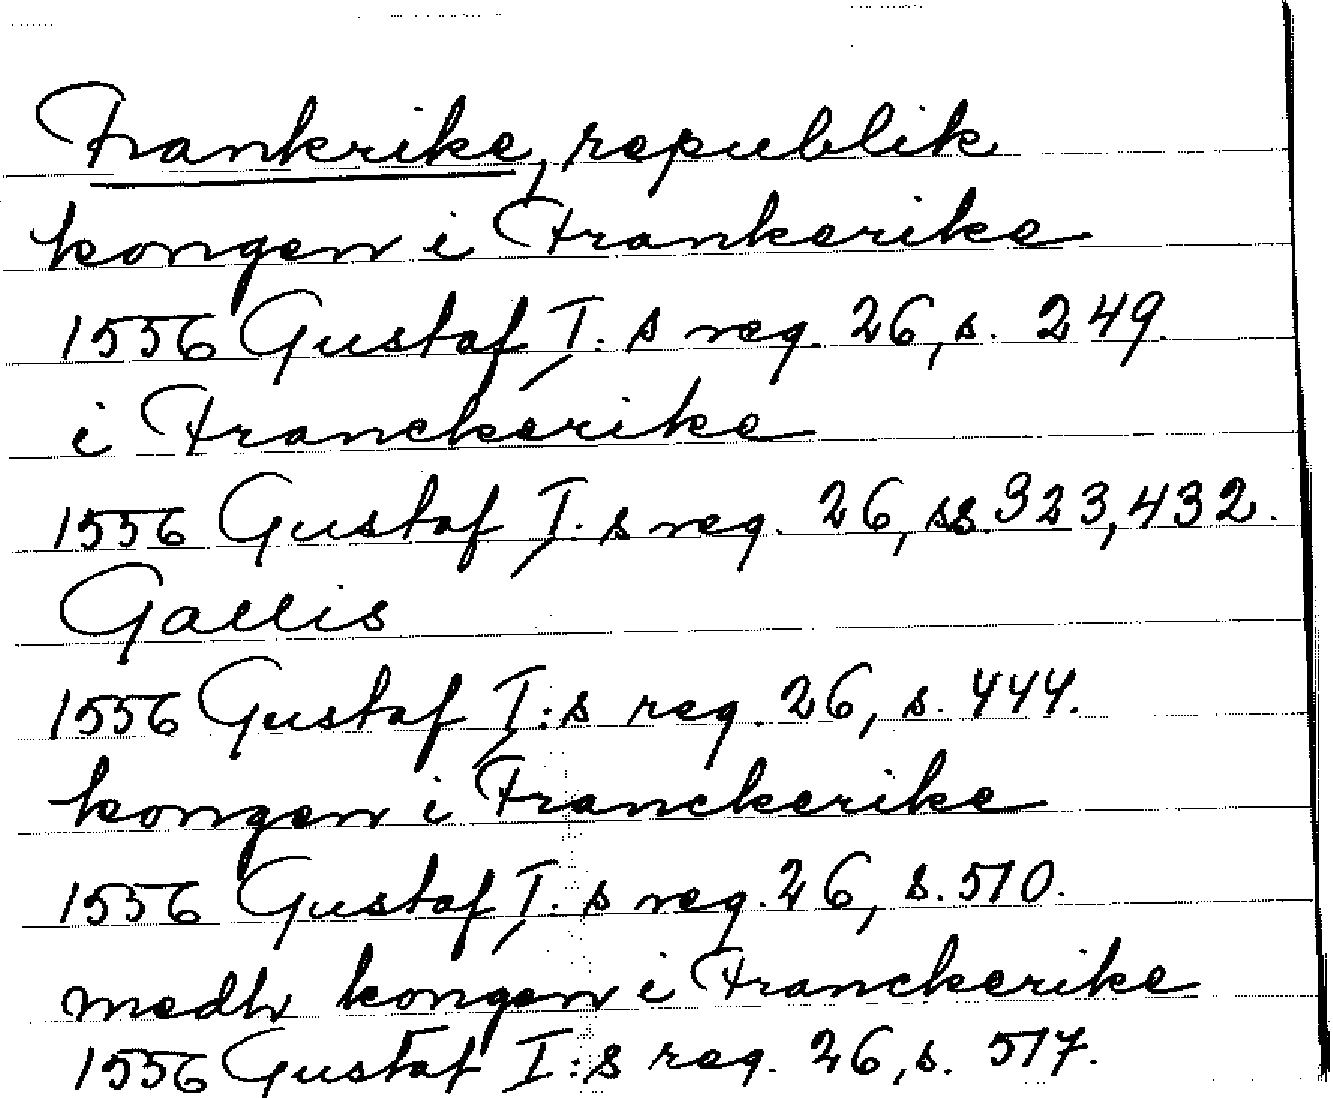 Frankrike, republik
kongen i Frankerike
1556 Gustaf I:s reg. 26, s. 249.
i Franckerike
1556 Gustaf I:s reg. 26, ss. 323, 432.
Gallis
1556 Gustaf I:s reg. 26, s. 444.
kongen i Franckerike
1556 Gustaf I:s reg. 26, s. 510.
medh kongen i Franckerike
1556 Gustaf I:s reg. 26, s. 517.